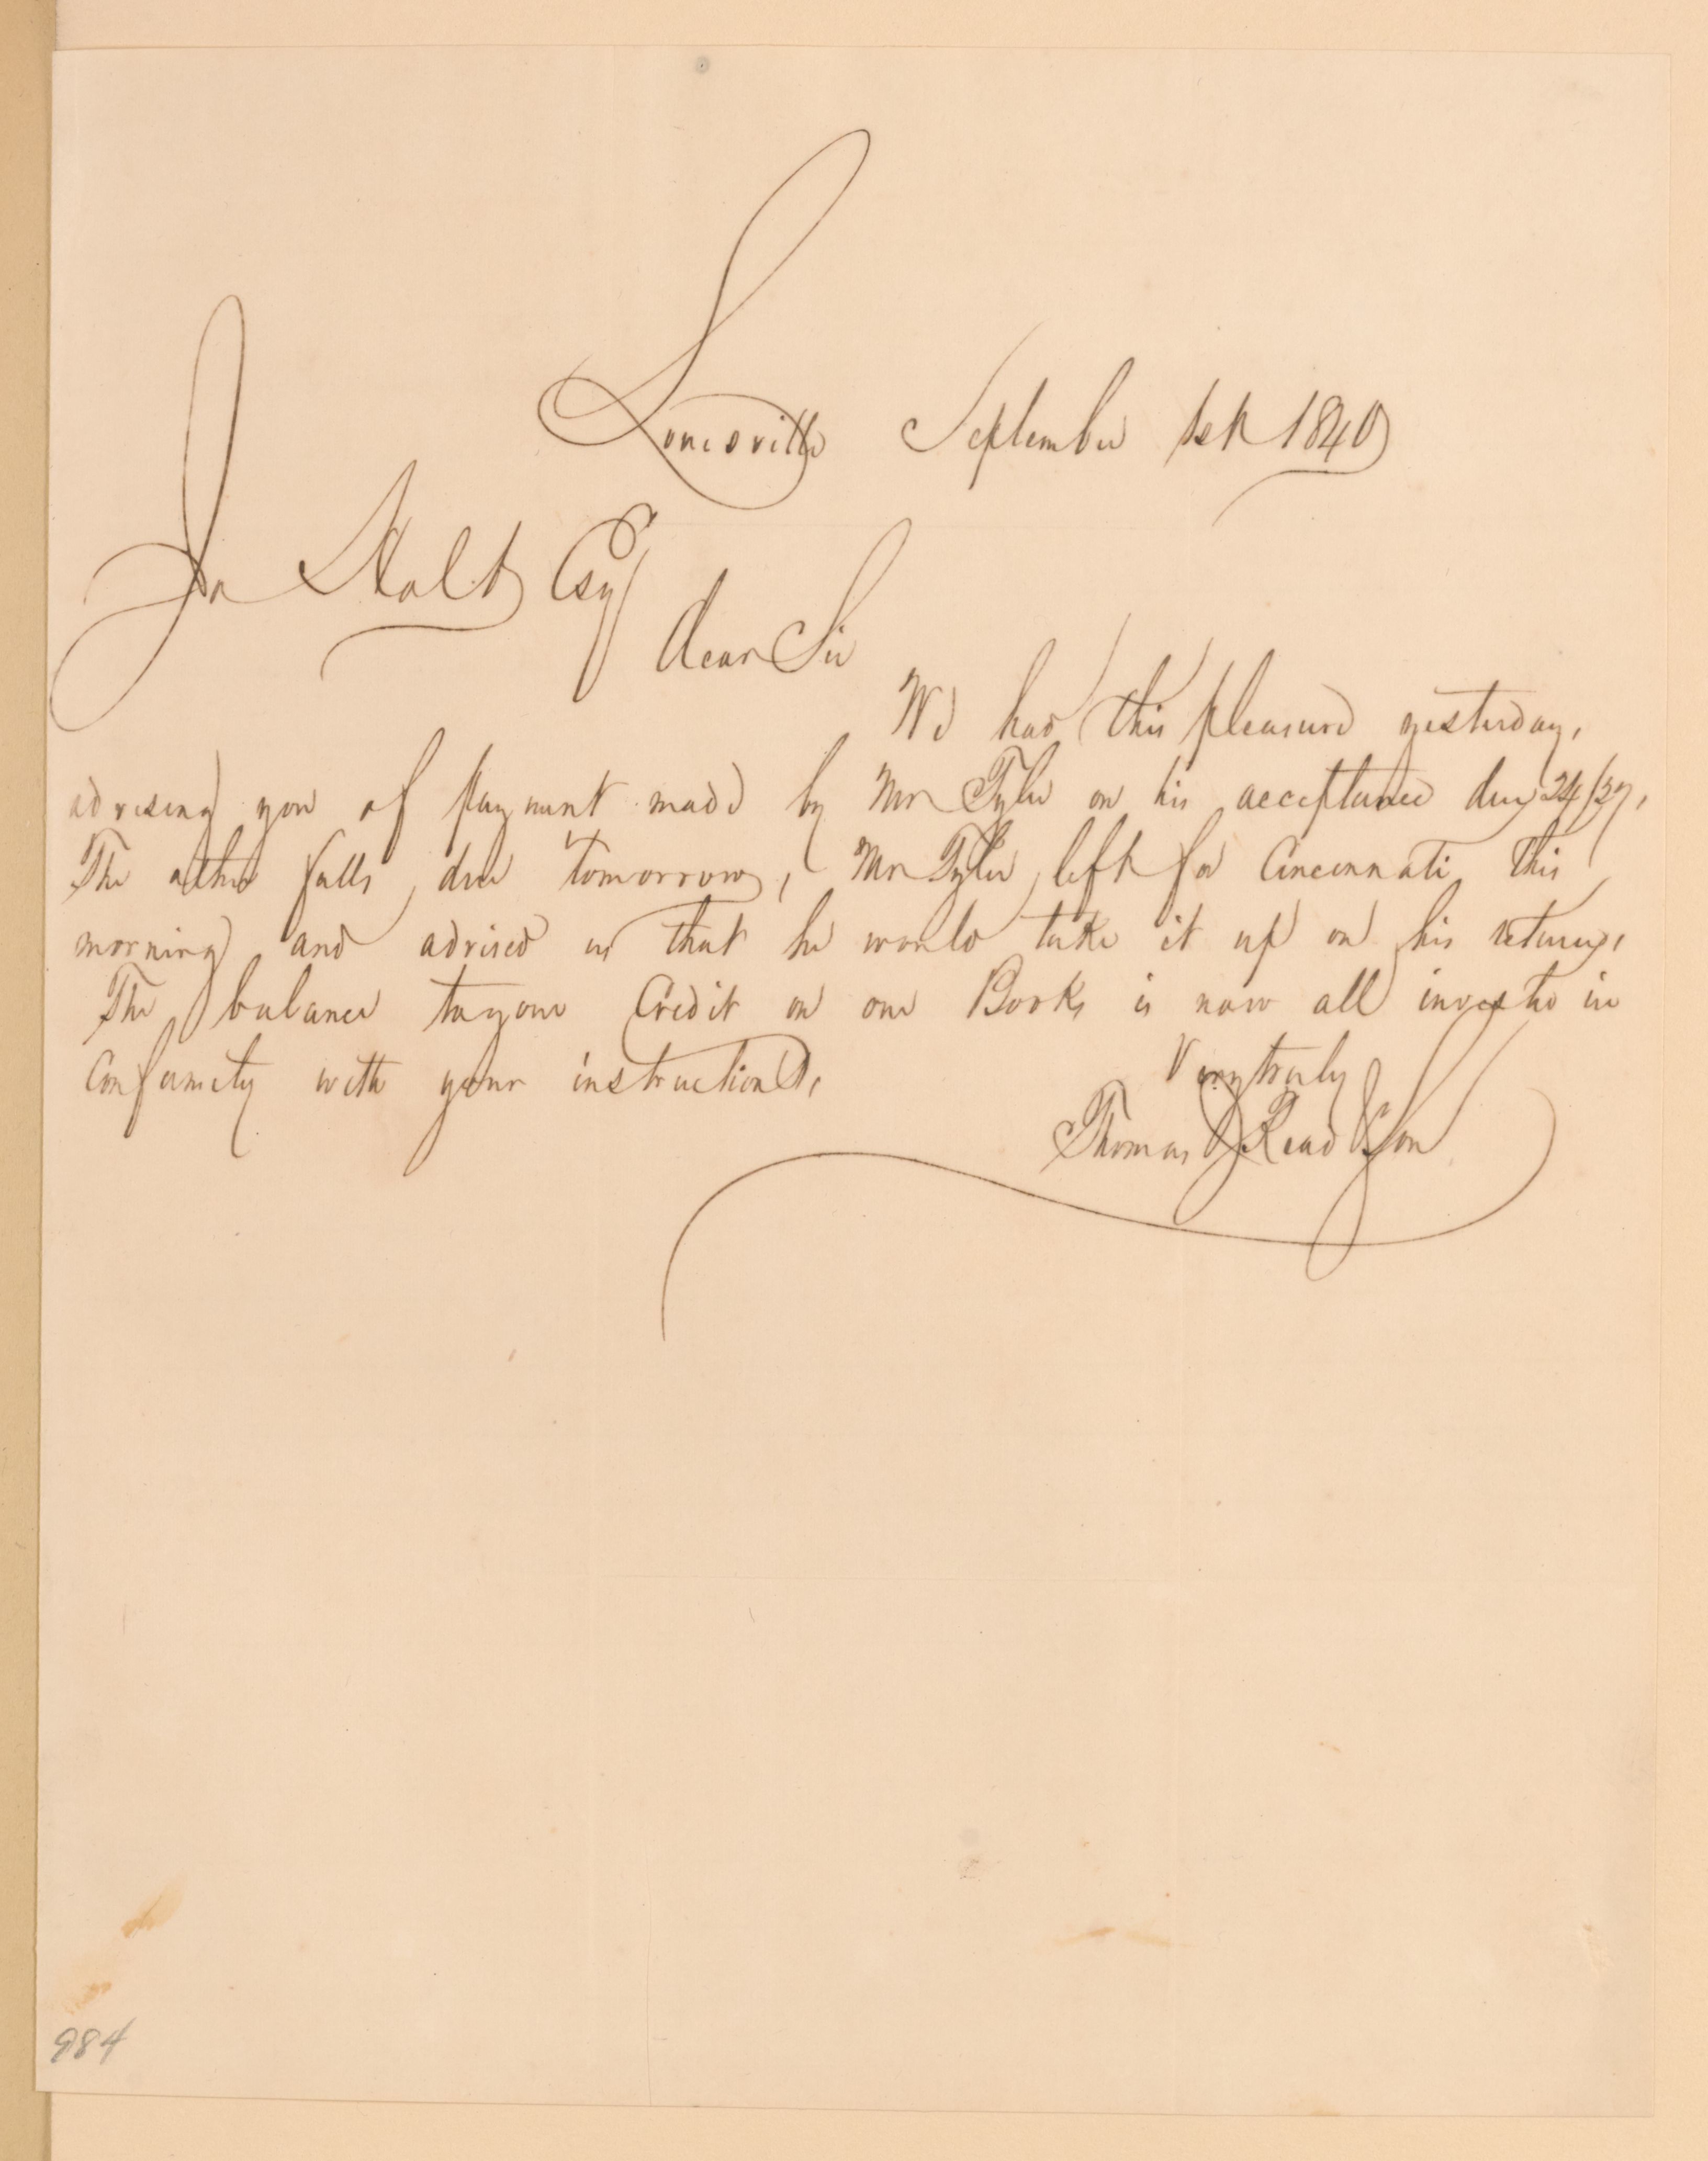 Louisville September 1st 1840
Jo Holt Esq
dear Sir
We had this pleasure yesterday,
advising you of payment made by Mr Tyler on his acceptance due 24/27,
The other falls due tomorrow, Mr Tyler left for Cincinnati this
morning and advised us that he would take it up on his return,
The balance to your Credit on our Books is now all invested in
Conformity with your instructions,
Very truly
Thomas J Read & Son
984